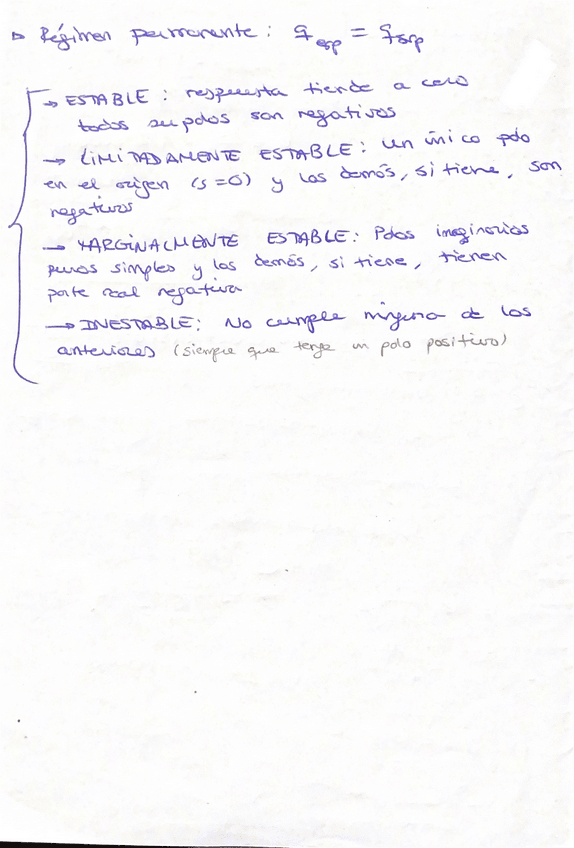 ▷ Régimen permanente: q_esp = q_srp
→ ESTABLE: respuesta tiende a cero
todos su polos son negativos
→ LIMITADAMENTE ESTABLE: un único polo
en el origen (s=0) y los demás, si tiene, son
negativos
→ MARGINALMENTE ESTABLE: Polos imaginarios
puros simples y los demás, si tiene, tienen
parte real negativa
→ INESTABLE: No cumple ninguna de los
anteriores (siempre que tenga un polo positivo)